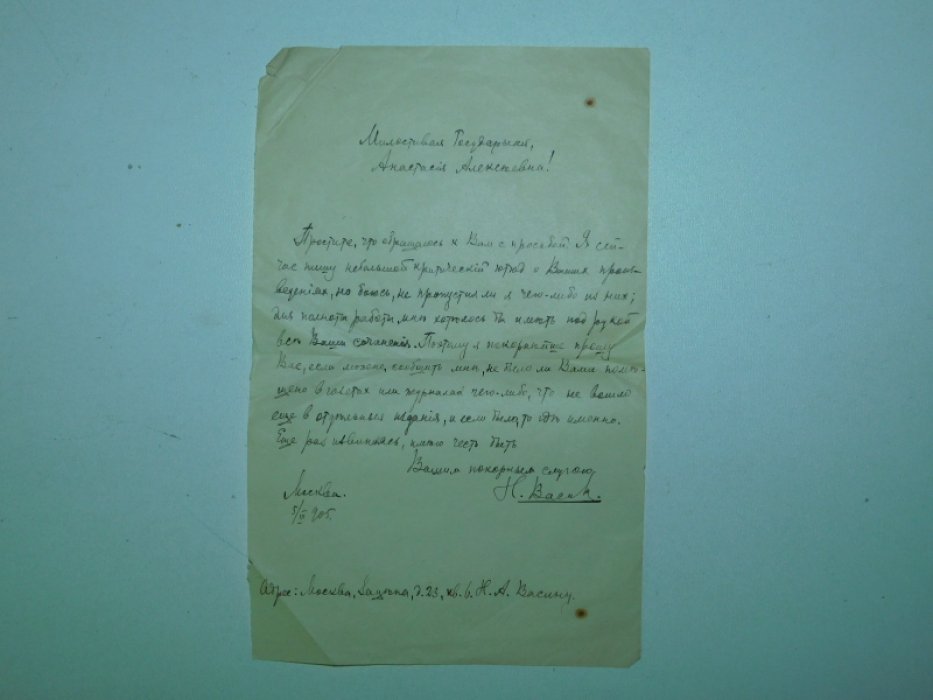 Милостивая Государыня,
Анастасія Алексѣевна!
Простите, что обращаюсь к Вам с просьбой. Я сей-
час пишу небольшой критическій этюд о Ваших произ-
ведениях, но боюсь, не пропустил ли я чего-либо из них;
для полноты работы мнѣ хотѣлось бы имѣть под рукой
всѣ Ваши сочиненія. Поэтому я покорнѣйше прошу
Вас, если можно, сообщить мнѣ, не было ли Вами помѣ-
щено в газетах или журналах чего-либо, что не вошло
еще в отдѣльныя изданія, и если было, то гдѣ именно.
Еще раз извиняясь, имѣю честь быть
Вашим покорным слугою
Н. Васин.
Москва.
905.
Адрес: Москва, Зацѣпа, д. 23, кв. 6. Н. А. Васину.